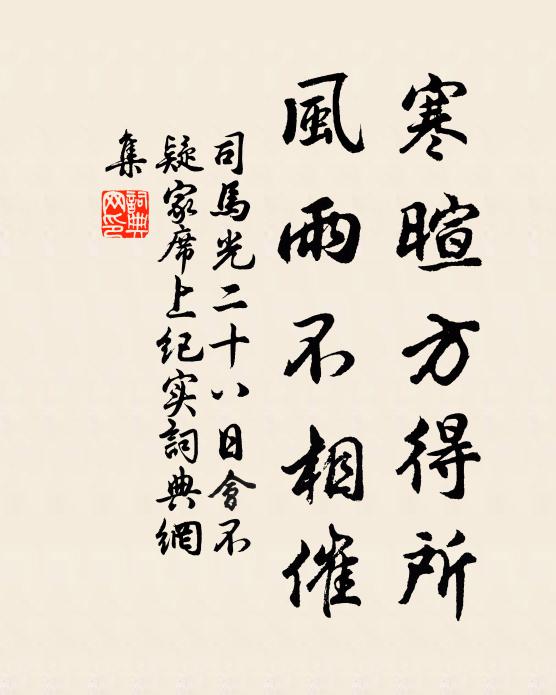 寒暄方得所
風雨不相催
司馬光二十八日會不
疑家席上纪实詞典網
集
詞典
网印